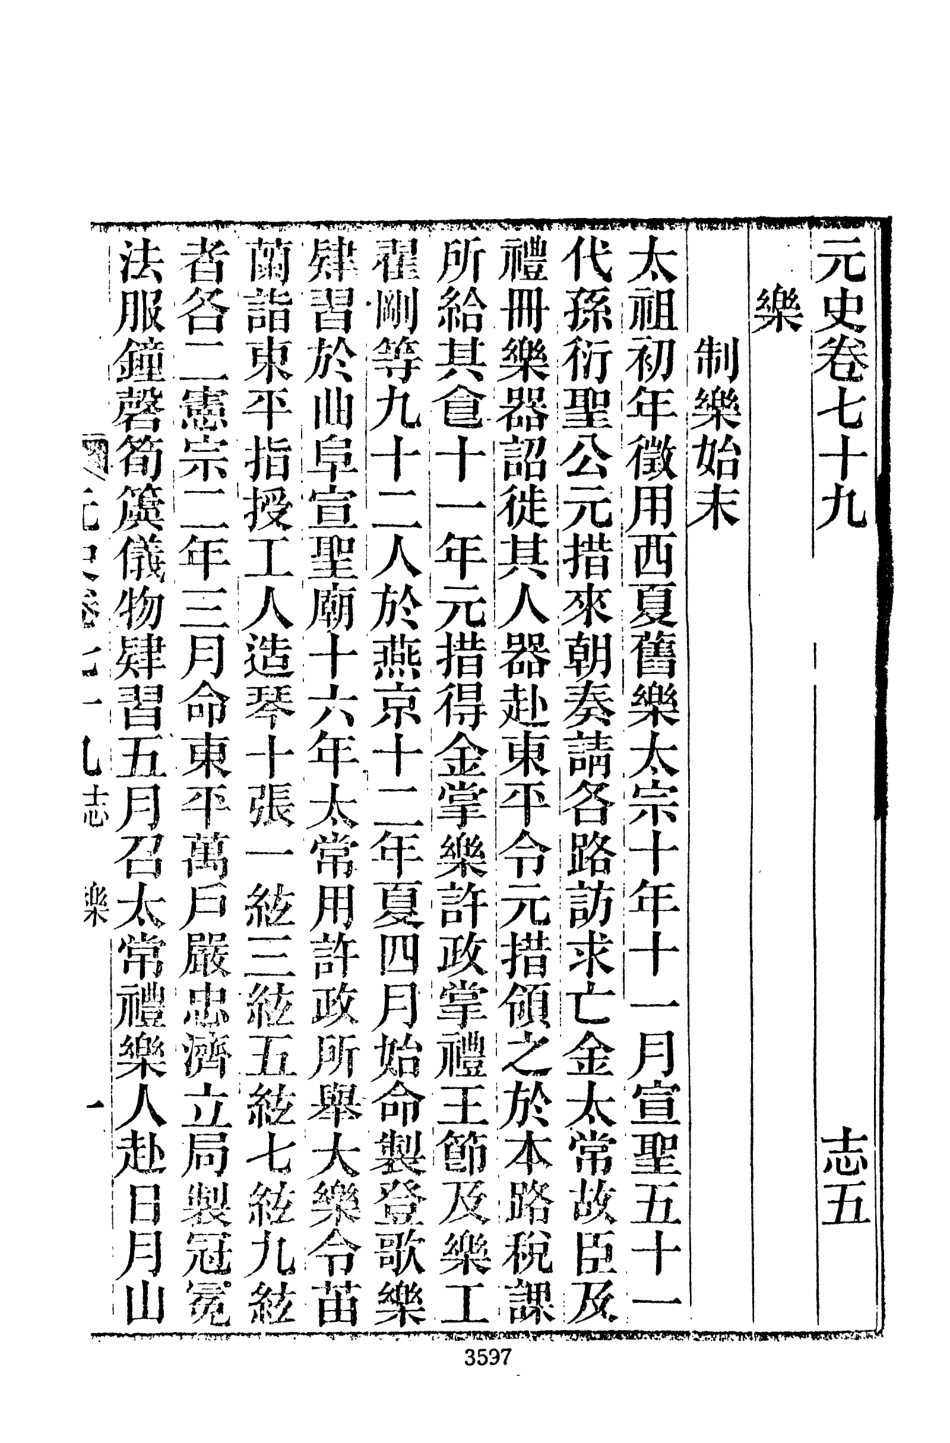 元史卷七十九 志五
樂
制樂始末
太祖初年徵用西夏舊樂太宗十年十一月宣聖五十一
代孫衍聖公元措來朝奏請各路訪求亡金太常故臣及
禮冊樂器詔徙其人器赴東平令元措領之於本路稅課
所給其食十一年元措得金掌樂許政掌禮王節及樂工
翟剛等九十二人於燕京十二年夏四月始命製登歌樂
肄習於曲阜宣聖廟十六年太常用許政所舉大樂令苗
蘭詣東平指授工人造琴十張一絃三絃五絃七絃九絃
者各二憲宗二年三月命東平萬戶嚴忠濟立局製冠冕
法服鐘磬筍簴儀物肄習五月召太常禮樂人赴日月山
元史卷七十九 志 樂 一
3597